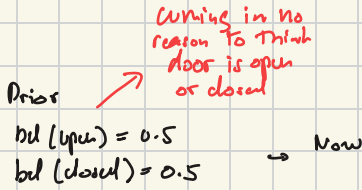 coming in no
reason to think
door is open
or closed
Prior
bel (open) = 0.5
bel (closed) = 0.5
→ Now